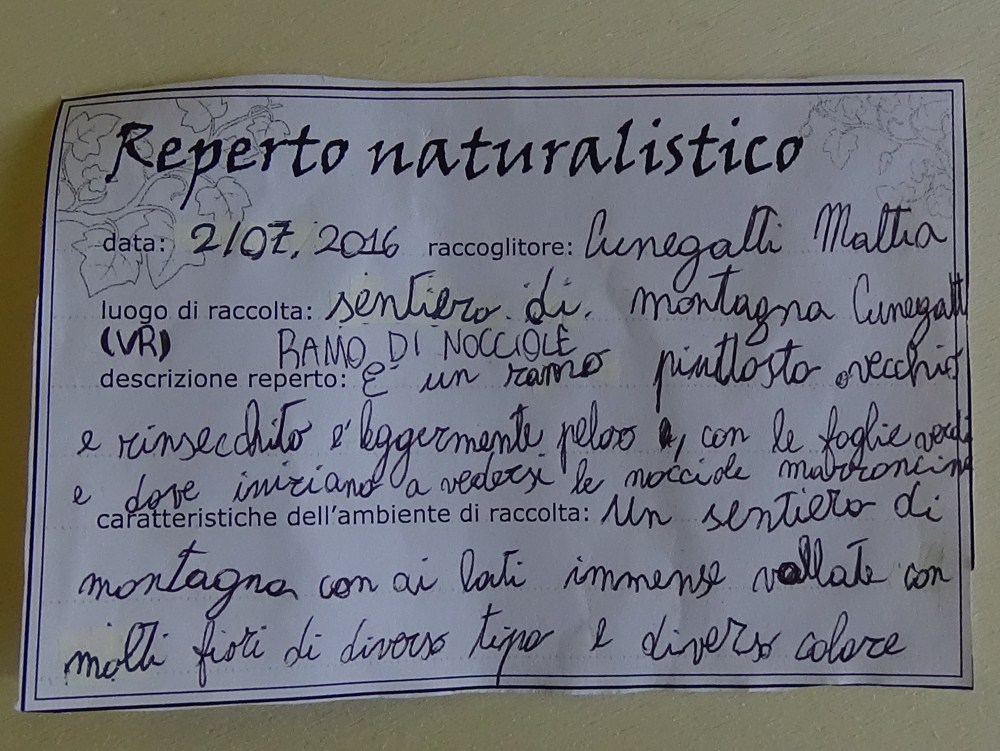 Reperto naturalistico
data: 2/07. 2016 raccoglitore: Cunegatti Mattia
luogo di raccolta: sentiero di. montagna Cunegatti
(VR) RAMO DI NOCCIOLE
descrizione reperto: È un ramo piuttosto vecchio
e rinsecchito e' leggermente peloso, con le foglie verdi
e dove iniziano a vedersi le nocciole marroncine
caratteristiche dell'ambiente di raccolta: Un sentiero di
montagna con ai lati immense vallate con
molti fiori di diverso tipo e diverso colore